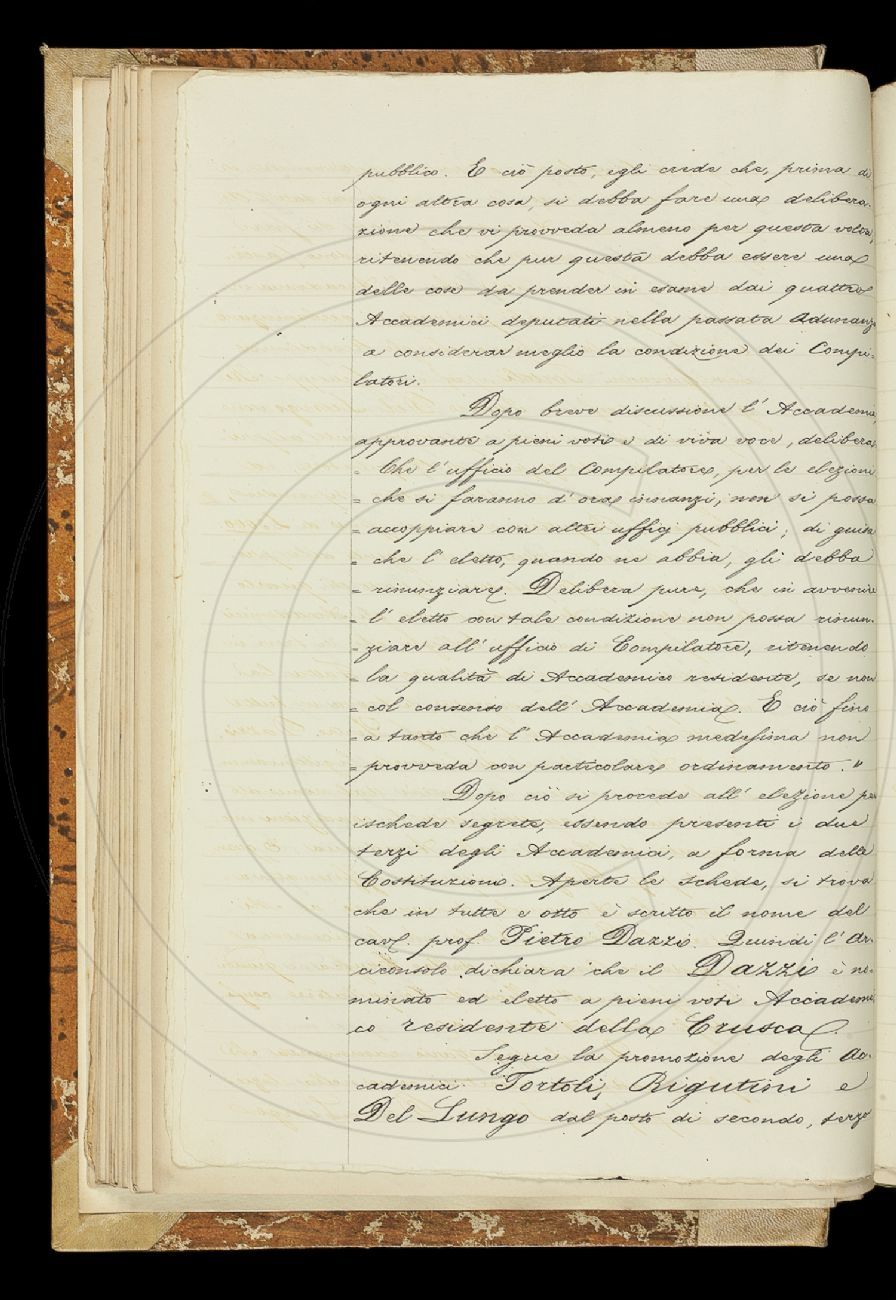 pubblico. E ciò posto, egli crede che, prima di
ogni altra cosa, si debba fare una delibera-
zione che vi provveda almeno per questa volta,
ritenendo che pur questa debba essere una
delle cose da prender in esame dai quattro
Accademici deputati nella passata Adunanza
a considerar meglio la condizione dei Compi=
latori.
Dopo breve discussione l' Accademia,
approvante a pieni voti e di viva voce, delibera:
" Che l' ufficio del Compilatore, per le elezioni
= che si faranno d' ora innanzi, non si possa
= accoppiare con altri ufficj pubblici; di guisa
= che l' eletto, quando ne abbia, gli debba
= rinunziare. Delibera pure, che in avvenire
= l' eletto con tale condizione non possa rinun-
= ziare all' ufficio di Compilatore, ritenendo
= la qualità di Accademico residente, se non
= col consenso dell' Accademia. E ciò fino
= a tanto che l' Accademia medesima non
= provveda con particolare ordinamento. "
Dopo ciò si procede all' elezione per
ischede segrete, essendo presenti i due
terzi degli Accademici, a forma delle
Costituzioni. Aperte le schede, si trova
che in tutte e otto è scritto il nome del
cav. prof. Pietro Dazzi. Quindi l' Ar-
ciconsolo dichiara che il Dazzi è no-
minato ed eletto a pieni voti Accademi
co residente della Crusca.
Segue la promozione degli Ac-
cademici Tortoli, Rigutini e
Del Lungo dal posto di secondo, terzo